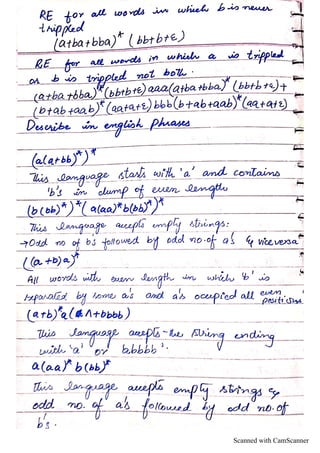 RE for all words in which b is never
trippled
(a+ba+bba)* (bb+b+ε)
RE for all words in which a is trippled
or b is trippled not both.
(a+ba+bba)*(bb+b+ε)aaa(a+ba+bba)*(bb+b+ε)+
(b+ab+aab)*(aa+a+ε)bbb(b+ab+aab)*(aa+a+ε)
Describe in english phrases
(a(a+bb)*)*
This language starts with 'a' and contains
'b's in clump of even length
(b(bb)*)*(a(aa)*b(bb)*)*
This language accepts empty strings:
→Odd no of b's followed by odd no. of a's & viceversa
((a+b)a)*
All words with even length in which 'b' is
separated by some a's and a's occupied all even
positions
(a+b)*a(Λ+bbbb)
This language accepts the string ending
with 'a' or bbbbb'.
a(aa)*b(bb)*
This language accepts empty strings &
odd no. of a's followed by odd no. of
b's.
Scanned with CamScanner